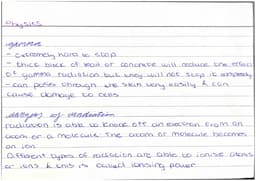 Physics
gamma
- extremely hard to stop
- thick block of lead or concrete will reduce the effect
of gamma radiation but they will not stop it completely
- can pass through the skin very easily & can
cause damage to cells
dangers of radiation
radiation is able to knock off an electron from an
atom or a molecule. The atom or molecule becomes
an ion
Different types of radiation are able to ionise atoms
or ions & this is called ionising power